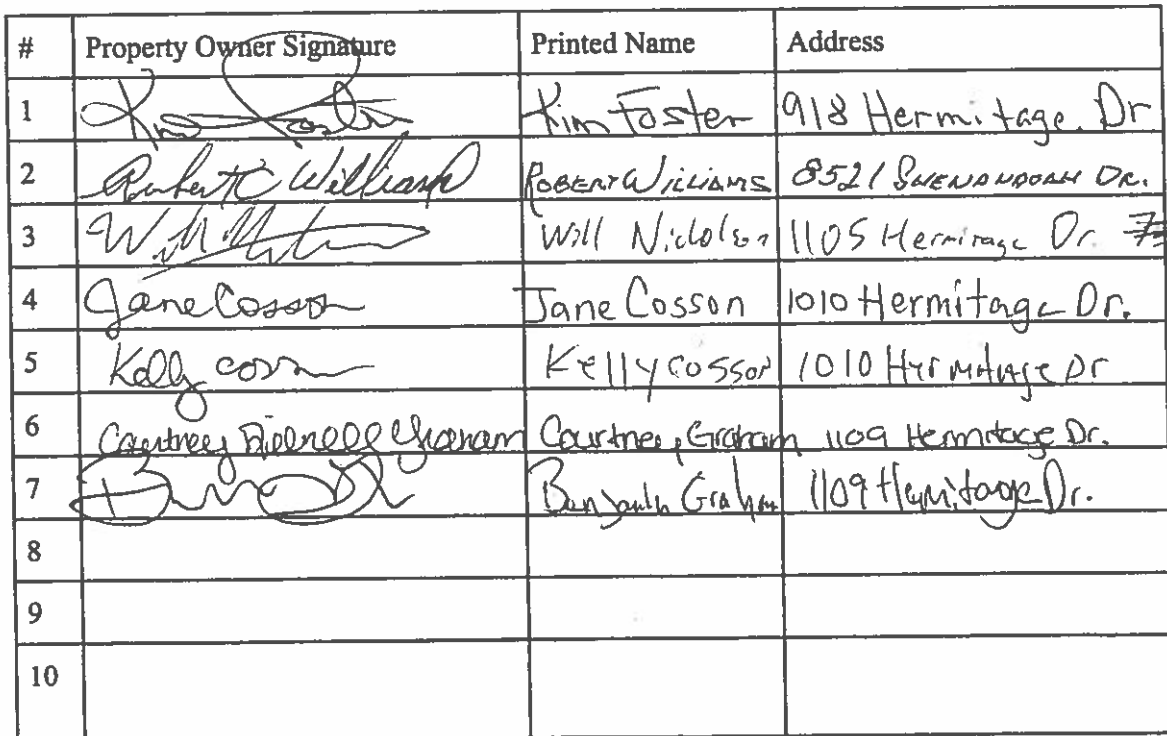 # Property Owner Signature Printed Name Address
1 Kim Foster Kim Foster 918 Hermitage Dr
2 Robert C Williams ROBERT WILLIAMS 8521 SHENANDOAH DR.
3 Will Will Nicholson 1105 Hermitage Dr.
4 Jane Cosson Jane Cosson 1010 Hermitage Dr.
5 Kelly Cosson Kelly Cosson 1010 Hermitage Dr
6 Courtney Graham Courtney Graham 1109 Hermitage Dr.
7 Benjamin Graham 1109 Hermitage Dr.
8
9
10